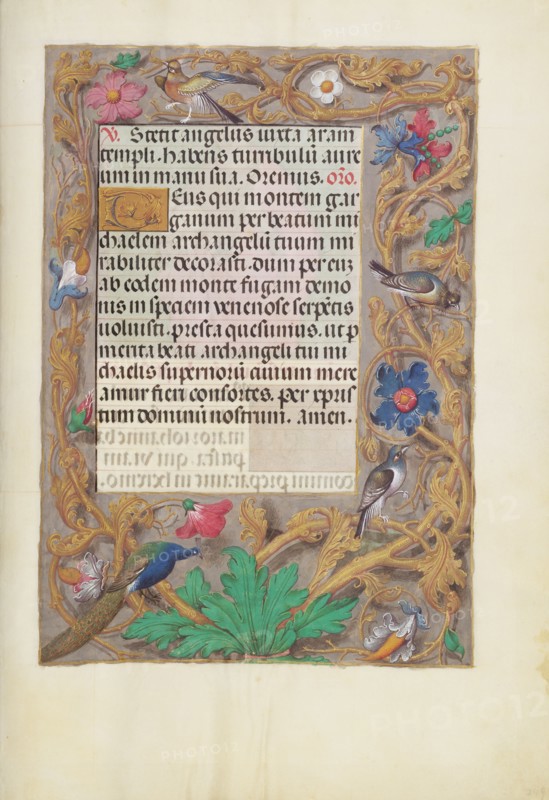 V. Stetit angelus iuxta aram
templi. habens turribulū aure
um in manu sua. Oremus. oro.
Eus qui montem gar
ganum per beatum mi
chaelem archangelū tuum mi
rabiliter decorasti. dum per euz
ab eodem monte fugam demo
nis in speciem venenose serpētis
uoluisti. presta quesumus. ut p
merita beati archangeli tui mi
chaelis supernorū ciuium mere
amur fieri consortes. per xpris
tum dominū nostrum. amen.
PHOTO12